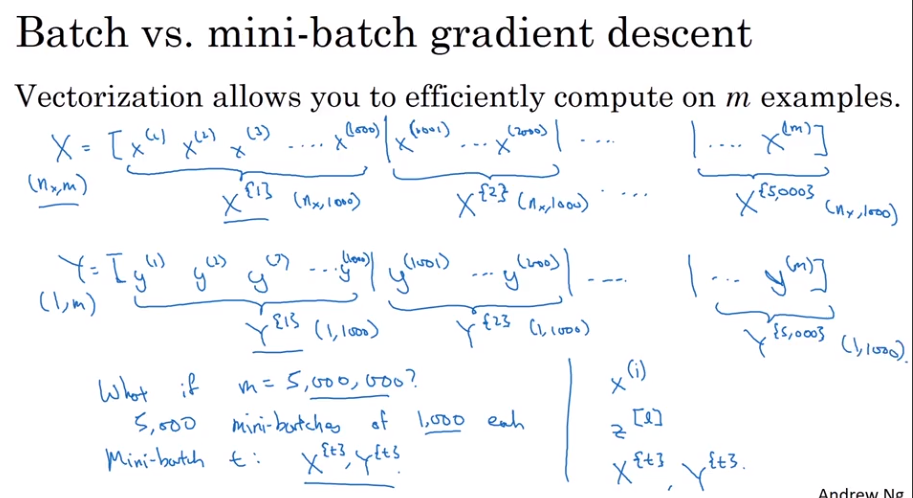 Batch vs. mini-batch gradient descent
Vectorization allows you to efficiently compute on m examples.
X = [x^(1) x^(2) x^(3) .... x^(1000) | x^(1001) ... x^(2000) | ... | .... x^(m)]
(n_x, m)
X^{1} (n_x, 1000) X^{2} (n_x, 1000) .... X^{5,000} (n_x, 1000)
Y = [y^(1) y^(2) y^(3) ... y^(1000) | y^(1001) ... y^(2000) | ---- | ... y^(m)]
(1, m)
Y^{1} (1, 1000) Y^{2} (1, 1000) Y^{5,000} (1, 1000)
What if m = 5,000,000?
5,000 mini-batches of 1,000 each
Mini-batch t: X^{t}, Y^{t}
x^(i)
z^[l]
X^{t}, Y^{t}.
Andrew Ng